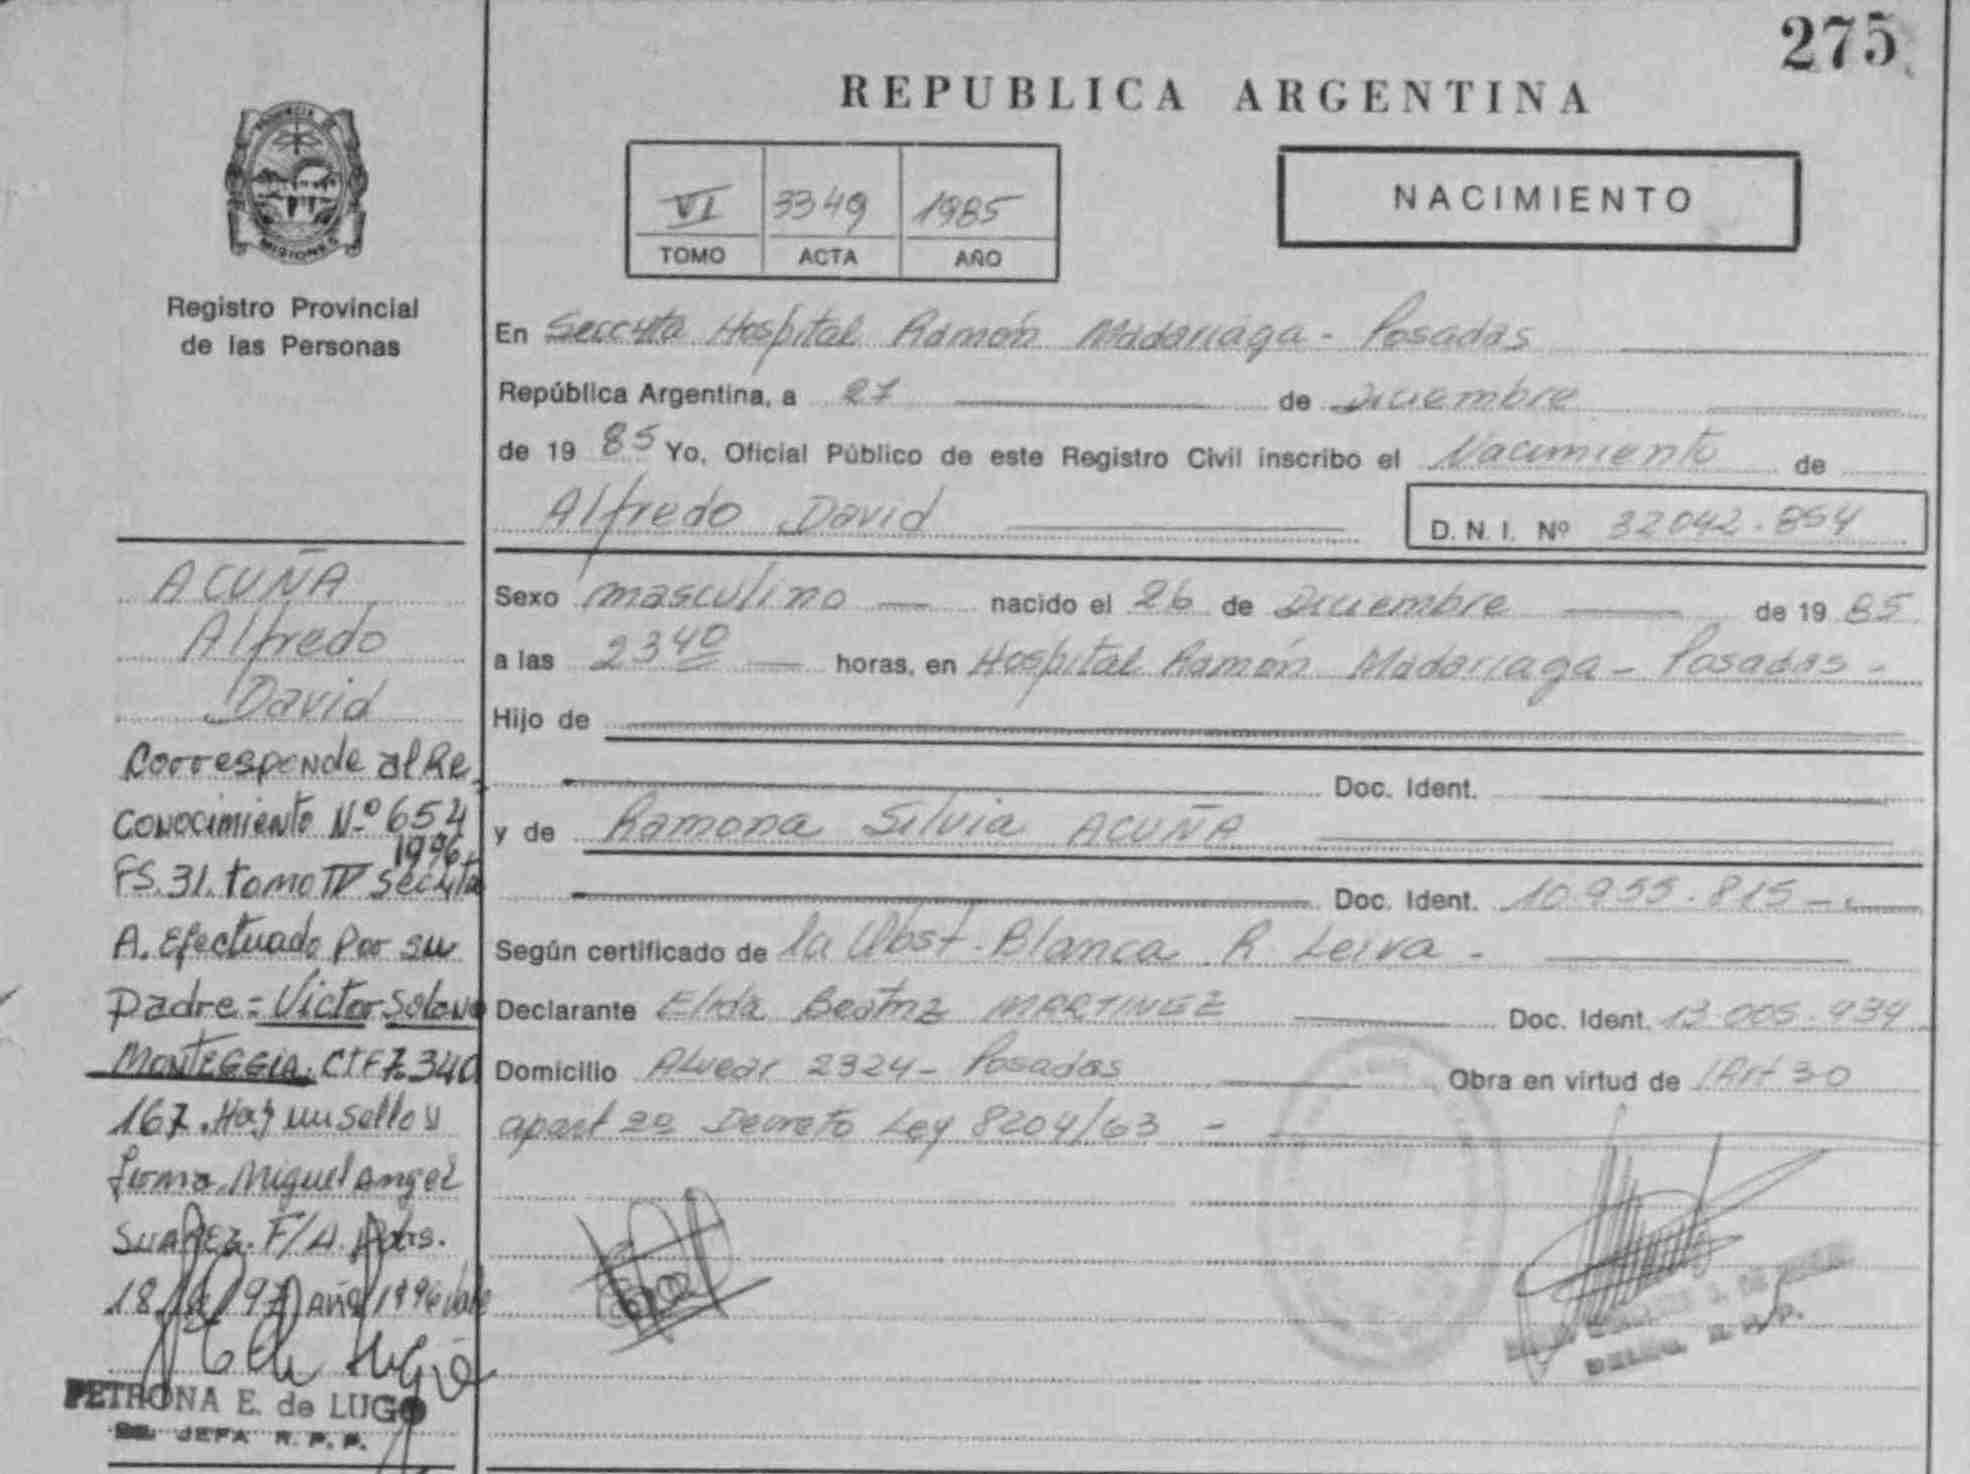 275
REPUBLICA ARGENTINA
VI 3349 1985
TOMO ACTA AÑO
NACIMIENTO
MISIONES
Registro Provincial
de las Personas
En Secc 4ta Hospital Ramón Madariaga - Posadas
República Argentina, a 27 de Diciembre
de 19 85 Yo, Oficial Público de este Registro Civil inscribo el Nacimiento de
Alfredo David
D. N. I. Nº 32042.854
Sexo masculino nacido el 26 de Diciembre de 19 85
a las 23 40 horas, en Hospital Ramón Madariaga - Posadas -
Hijo de
Doc. Ident.
y de Ramona Silvia ACUÑA
Doc. Ident. 10.955.815 -
Según certificado de la Obst. Blanca R Leiva -
Declarante Elida Beatriz MARTINEZ Doc. Ident. 13.005.934
Domicilio Alvear 2324 - Posadas Obra en virtud de Art 30
apart 2º Decreto Ley 8204/63 -
ACUÑA
Alfredo
David
Corresponde al Re
conocimiento Nº 654
1996
FS. 31. tomo IV Sec 4ta
A. Efectuado Por su
Padre = Victor Solano
MONTEGGIA. CIF 7.340
167. Hay un sello y
firma. Miguel Angel
SUAREZ. F/A. Pdas.
Año 1996 vale
PETRONA E. de LUGO
JEFA R. P. P.